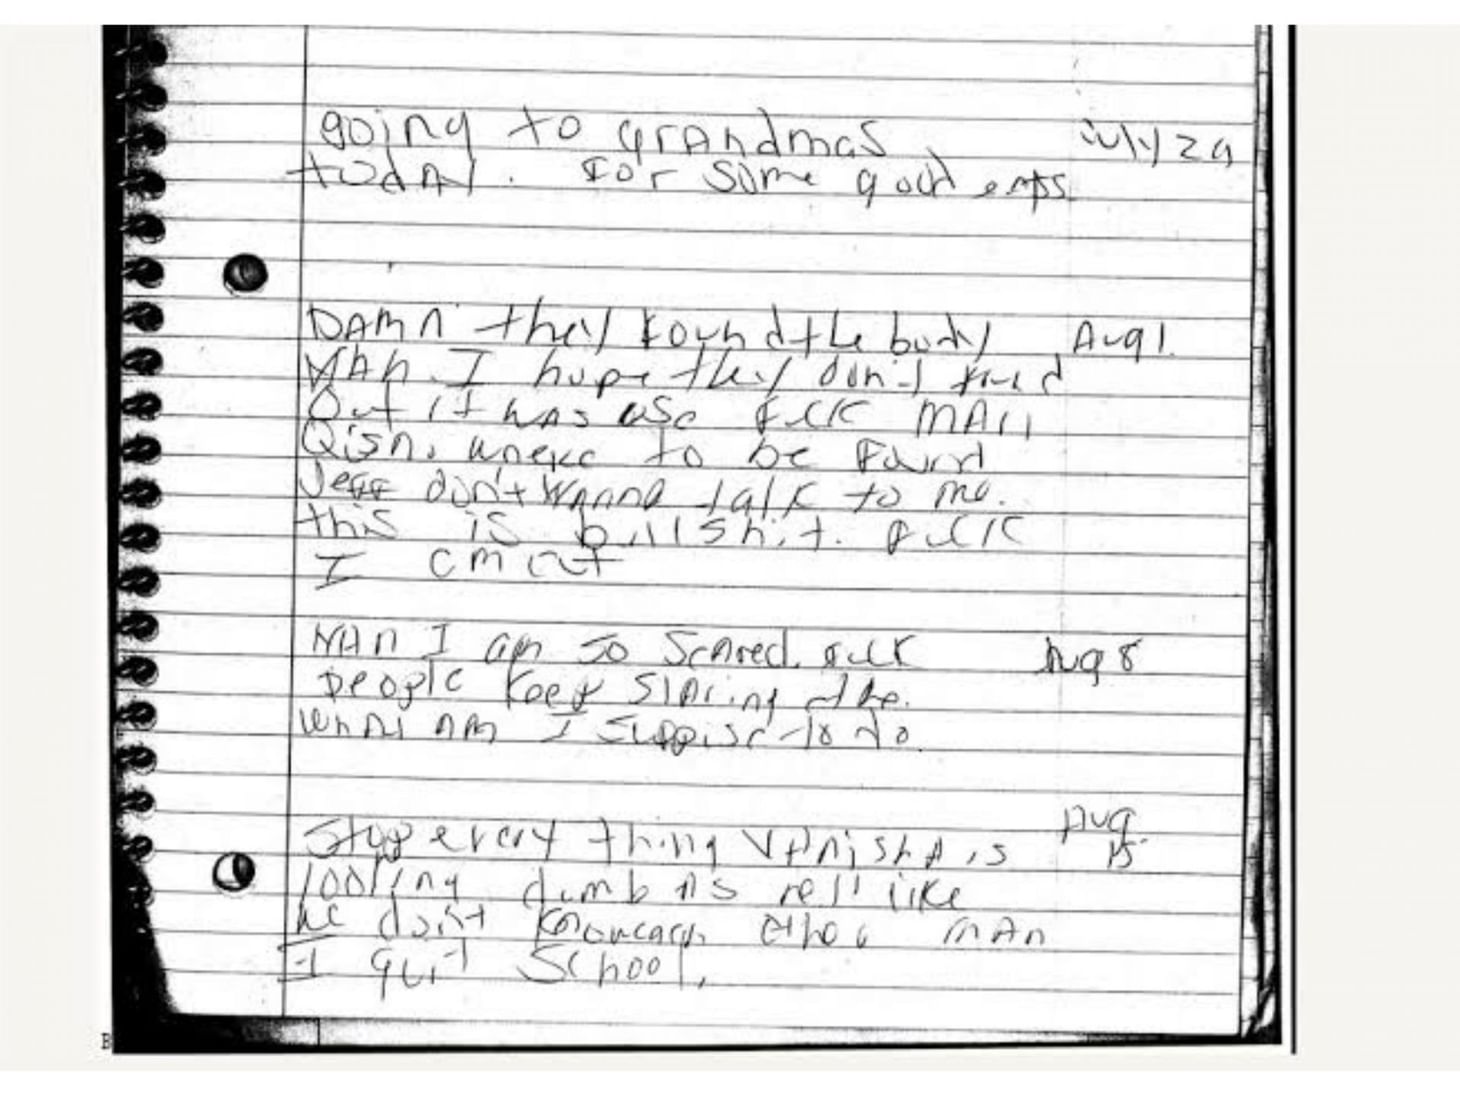 going to grandmas July 29
today. For some good eats
DAMN they found the body Aug 1.
MAN. I hope they don't find
Out it was us fuck MAN
where to be Found
Jeff don't wanna talk to me.
this is bullshit. Fuck
I
MAN I am so scared. fuck Aug 8
people keep staring at me.
what am I suppise to do.
Stop every thing is Aug 15
looking dumb as hell like
we don't know each other MAN
I quit School.
B